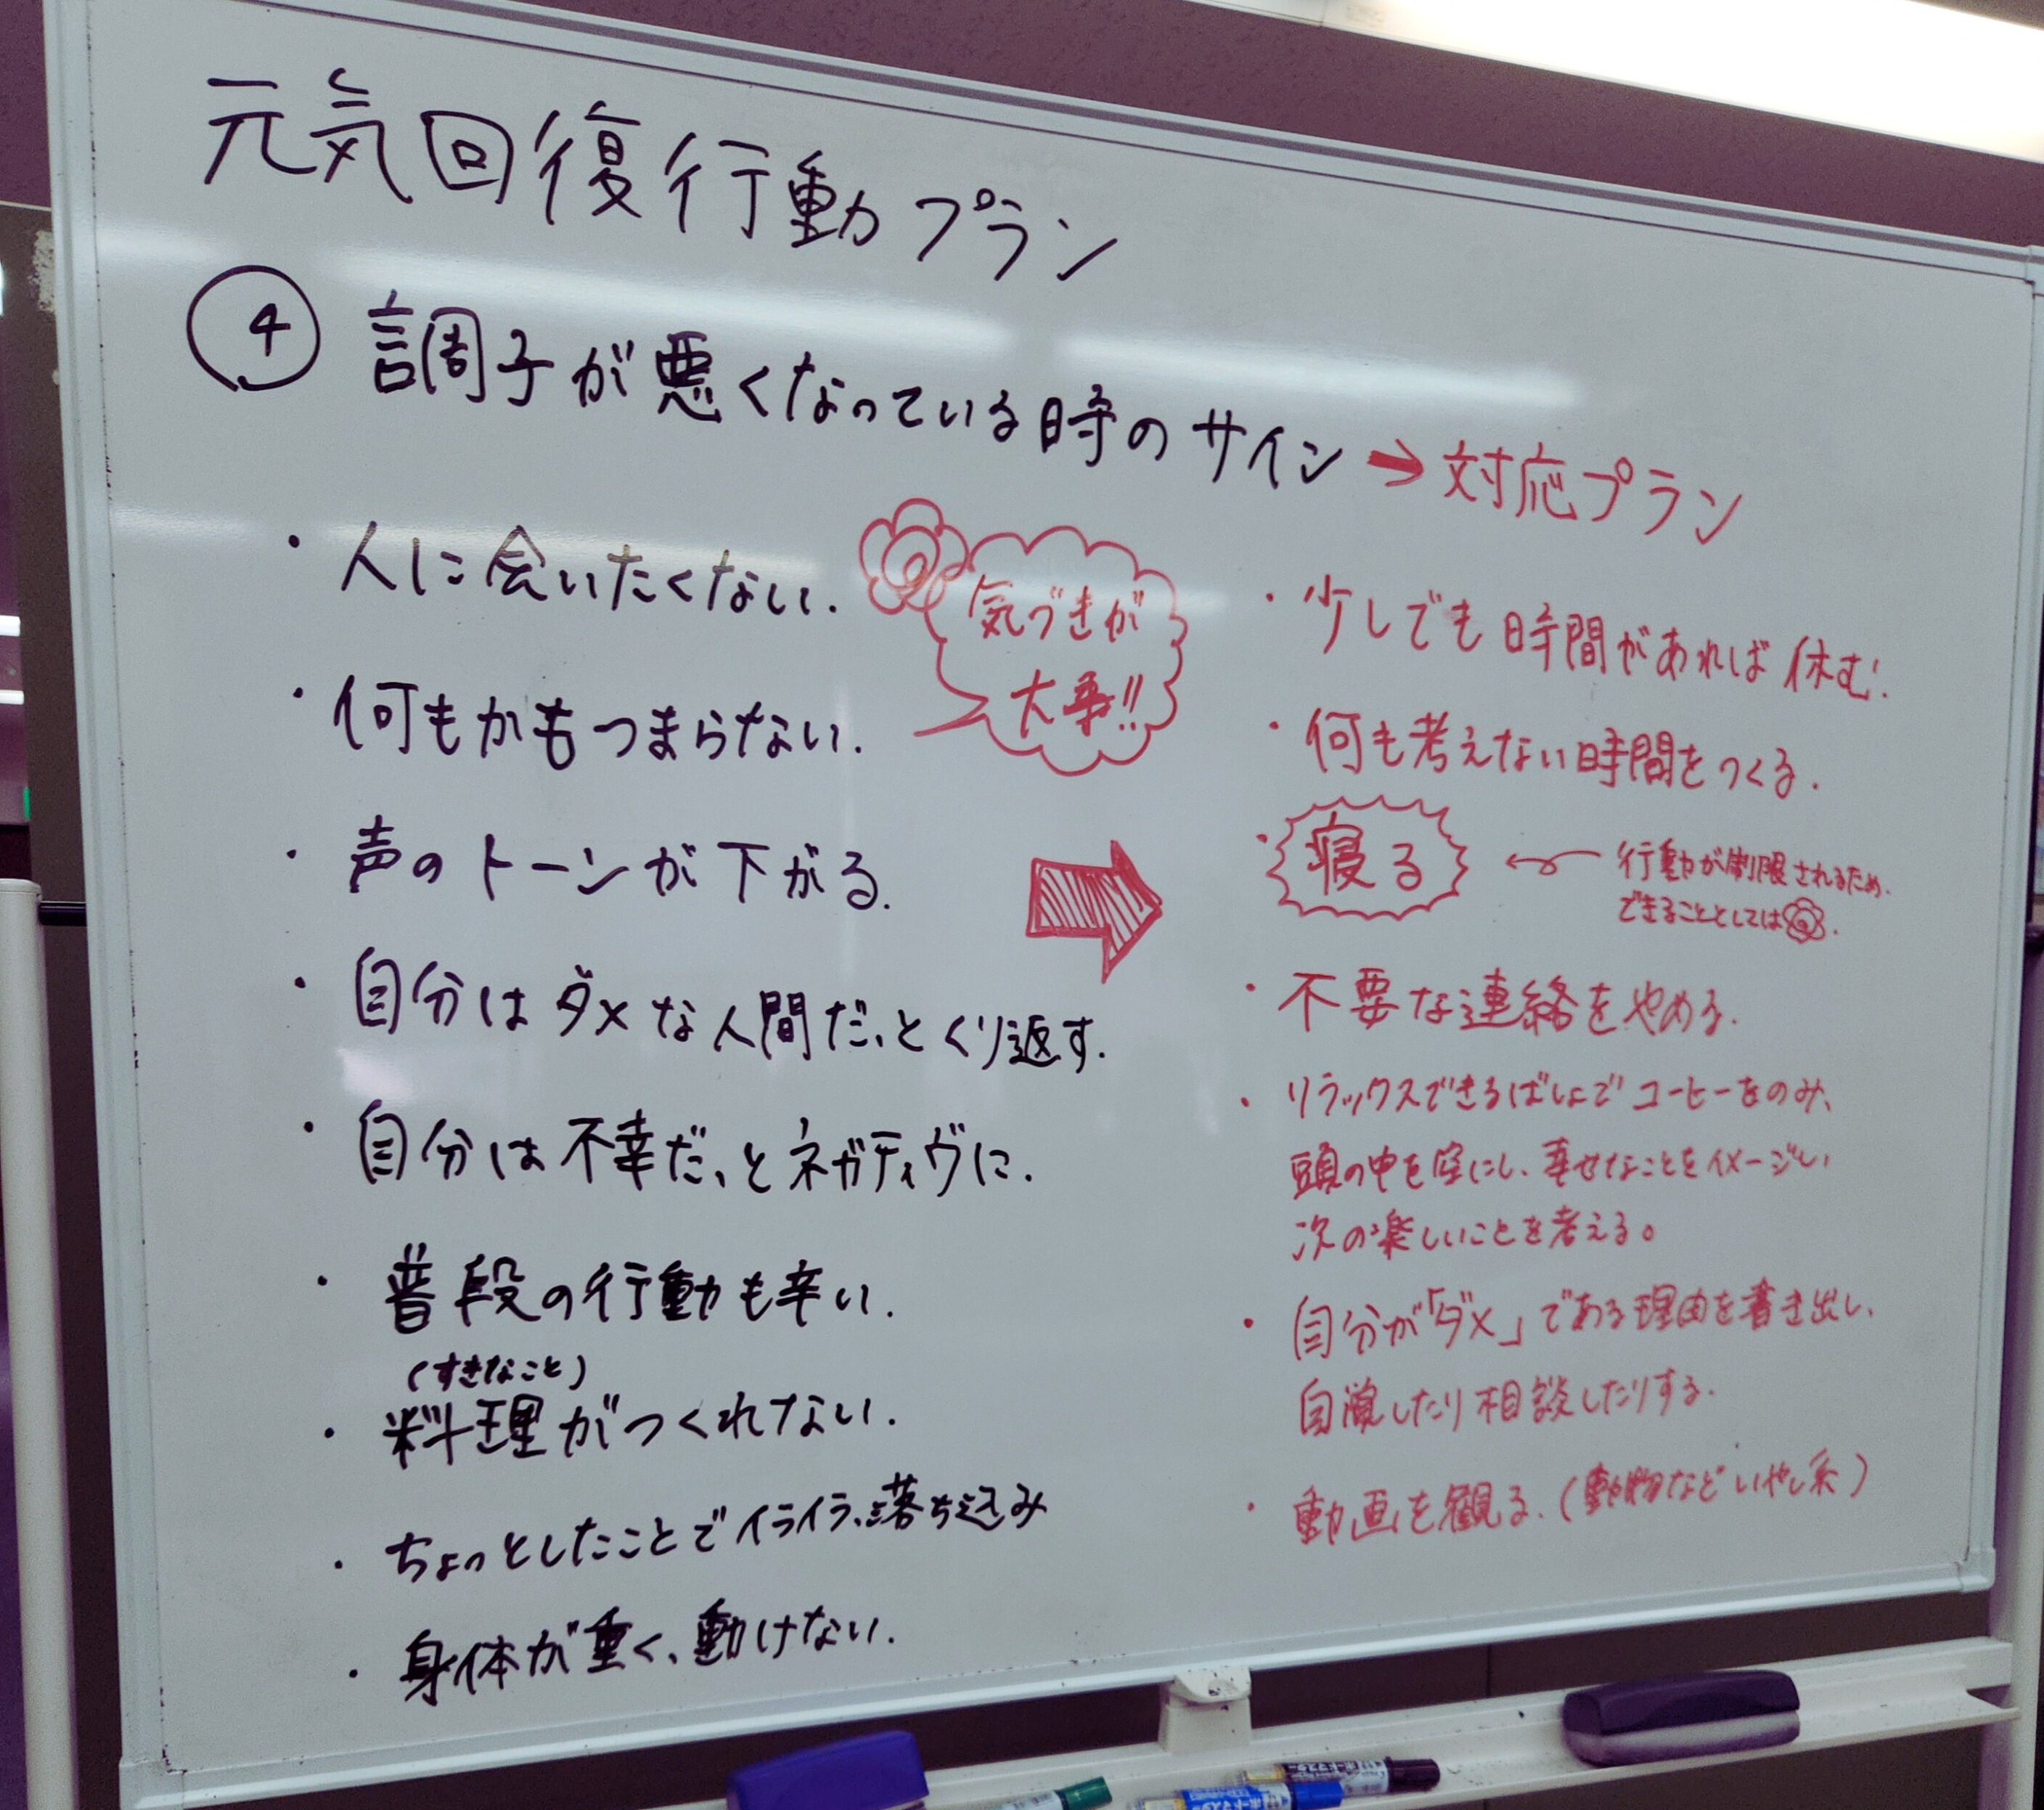 元気回復行動プラン
④ 調子が悪くなっている時のサイン → 対応プラン
・人に会いたくない.
・何もかもつまらない.
・声のトーンが下がる.
・自分はダメな人間だ、とくり返す.
・自分は不幸だ、とネガティヴに.
・普段の行動も辛い.
(すきなこと)
・料理がつくれない.
・ちょっとしたことでイライラ、落ち込み
・身体が重く、動けない.
気づきが
大事!!
・少しでも時間があれば休む.
・何も考えない時間をつくる.
・寝る
行動が制限されるため.
できることとしては.
・不要な連絡をやめる.
・リラックスできるばしょでコーヒーをのみ、
頭の中を空にし、幸せなことをイメージし、
次の楽しいことを考える。
・自分が「ダメ」である理由を書き出し、
自覚したり相談したりする.
・動画を観る.(動物などいやし系)